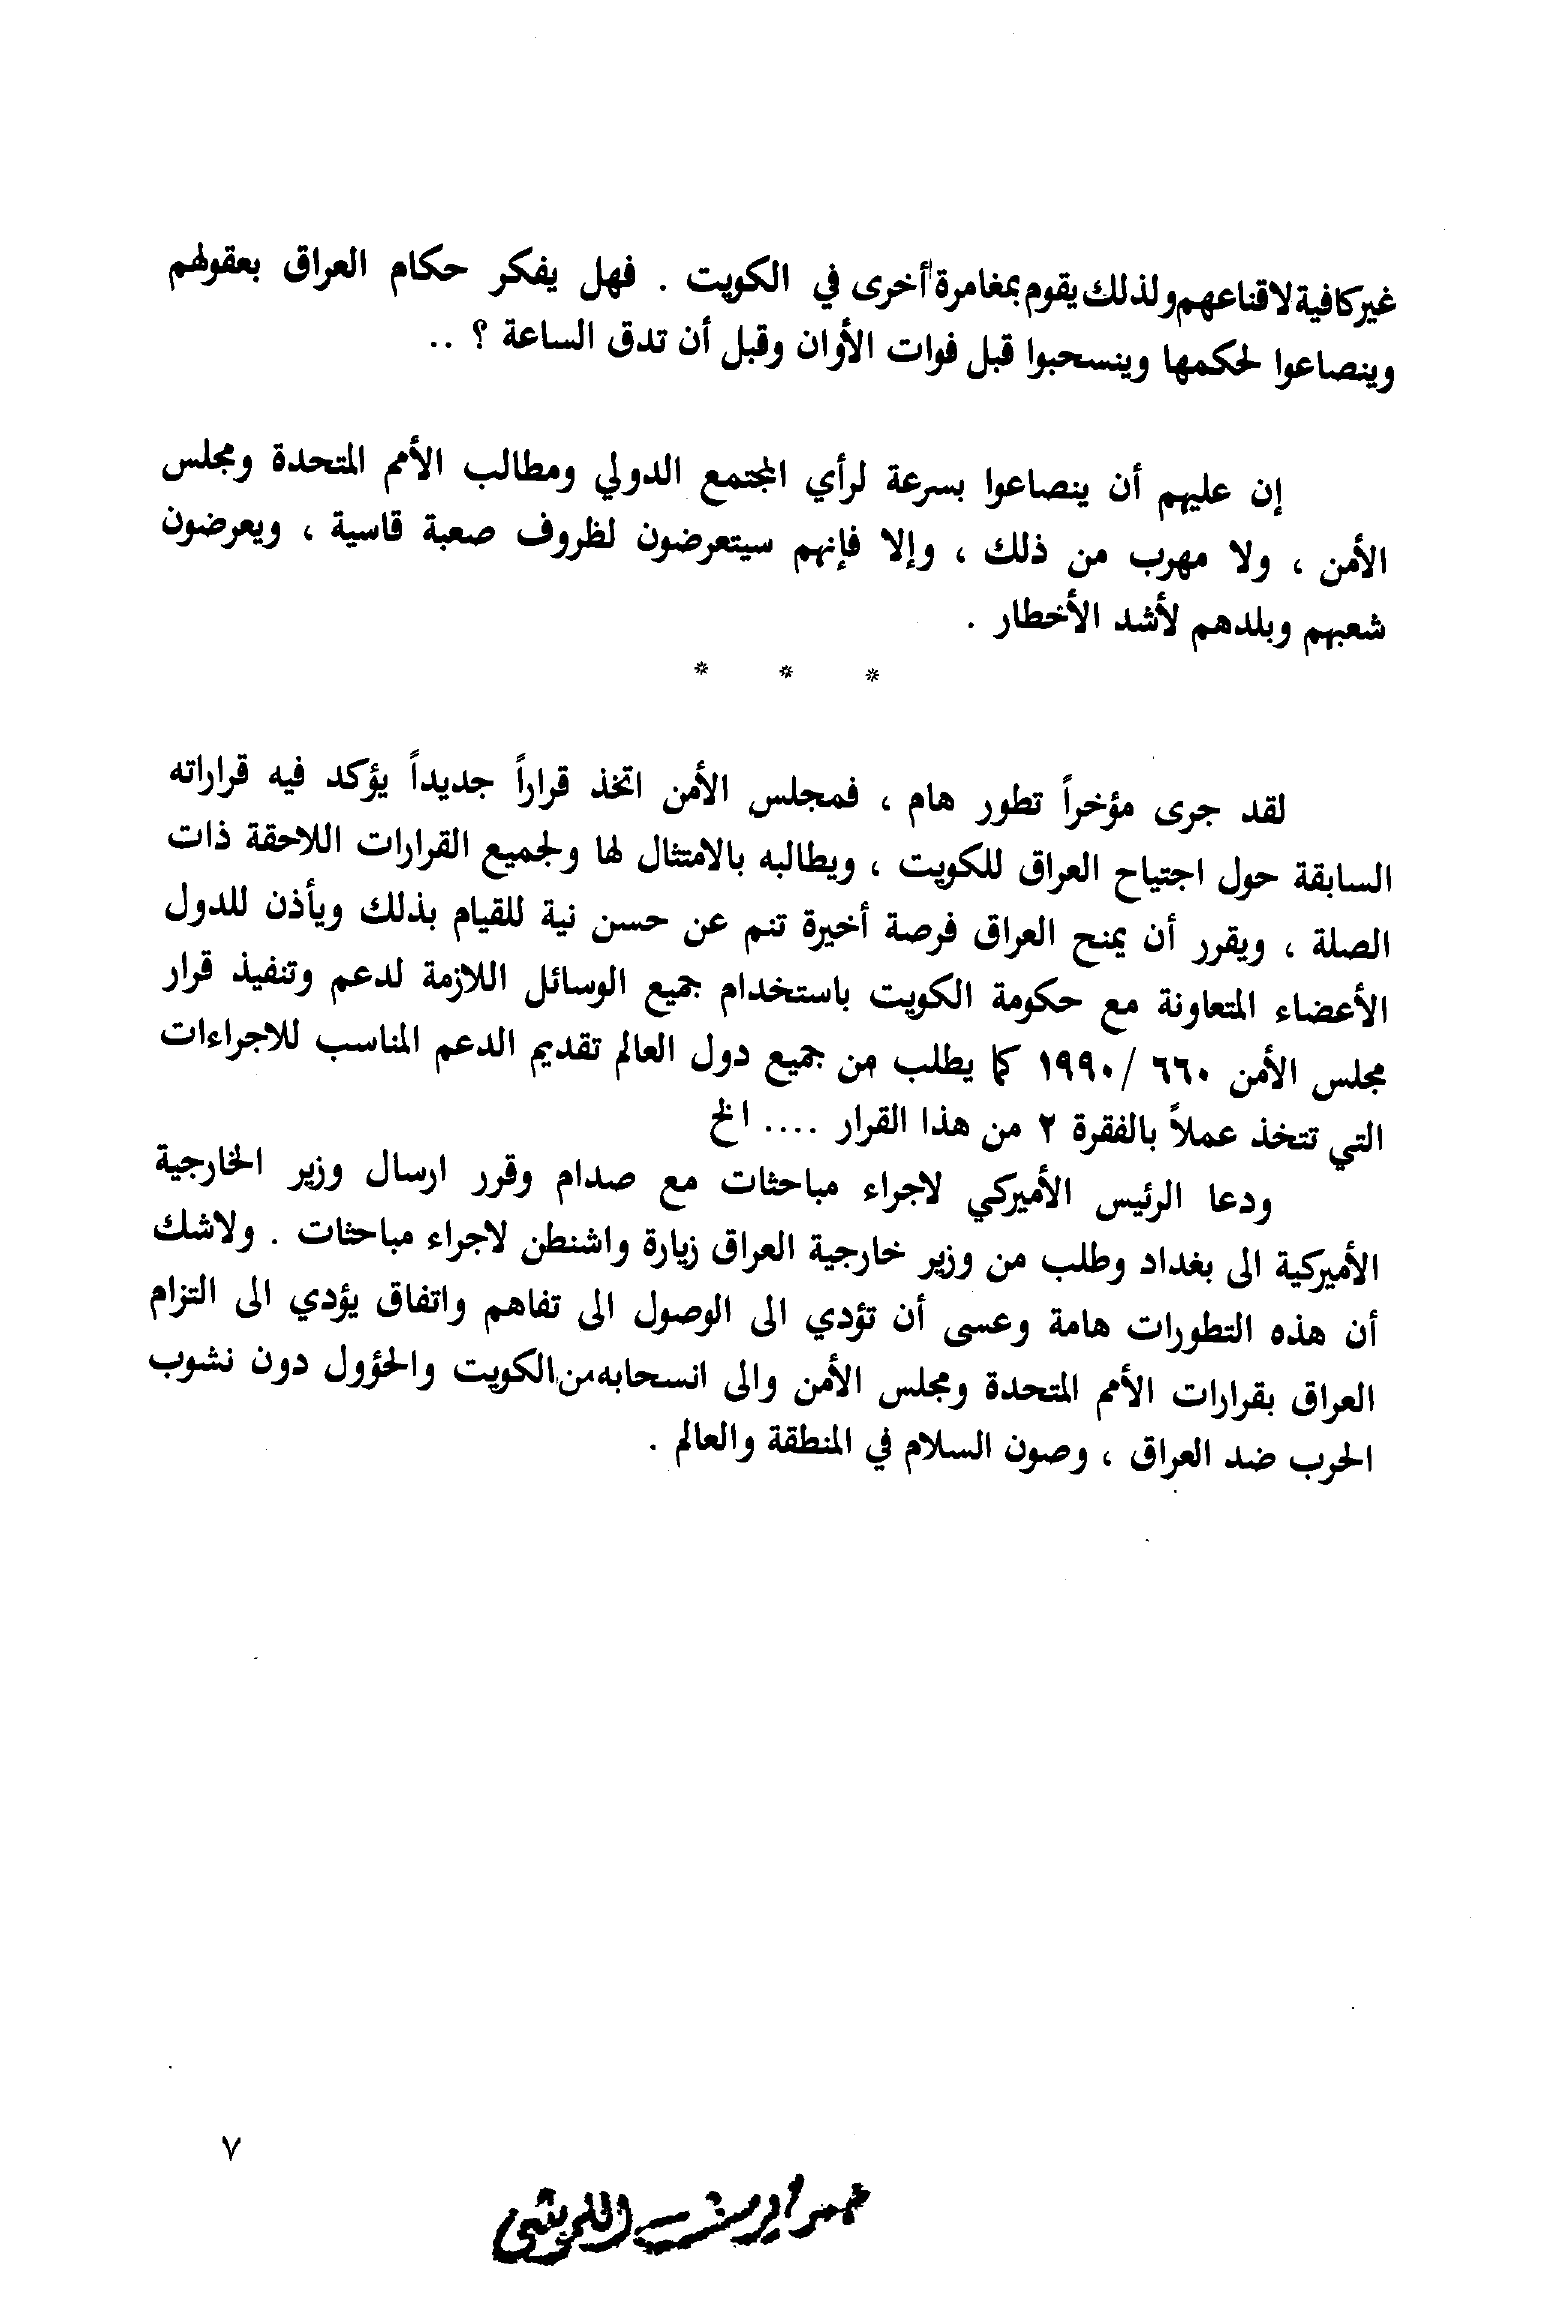 غير كافية لاقناعهم ولذلك يقوم بمغامرة أخرى في الكويت . فهل يفكر حكام العراق بعقولهم
وينصاعوا لحكمها وينسحبوا قبل فوات الأوان وقبل أن تدق الساعة ؟ ..
إن عليهم أن ينصاعوا بسرعة لرأي المجتمع الدولي ومطالب الأمم المتحدة ومجلس
الأمن ، ولا مهرب من ذلك ، وإلا فإنهم سيتعرضون لظروف صعبة قاسية ، ويعرضون
شعبهم وبلدهم لأشد الأخطار .
* * *
لقد جرى مؤخراً تطور هام ، فمجلس الأمن اتخذ قراراً جديداً يؤكد فيه قراراته
السابقة حول اجتياح العراق للكويت ، ويطالبه بالامتثال لها ولجميع القرارات اللاحقة ذات
الصلة ، ويقرر أن يمنح العراق فرصة أخيرة تنم عن حسن نية للقيام بذلك ويأذن للدول
الأعضاء المتعاونة مع حكومة الكويت باستخدام جميع الوسائل اللازمة لدعم وتنفيذ قرار
مجلس الأمن ٦٦٠ /١٩٩٠ كما يطلب من جميع دول العالم تقديم الدعم المناسب للاجراءات
التي تتخذ عملاً بالفقرة ٢ من هذا القرار .... الخ
ودعا الرئيس الأميركي لاجراء مباحثات مع صدام وقرر ارسال وزير الخارجية
الأميركية الى بغداد وطلب من وزير خارجية العراق زيارة واشنطن لاجراء مباحثات . ولاشك
أن هذه التطورات هامة وعسى أن تؤدي الى الوصول الى تفاهم واتفاق يؤدي الى التزام
العراق بقرارات الأمم المتحدة ومجلس الأمن والى انسحابه من الكويت والحؤول دون نشوب
الحرب ضد العراق ، وصون السلام في المنطقة والعالم .
٧